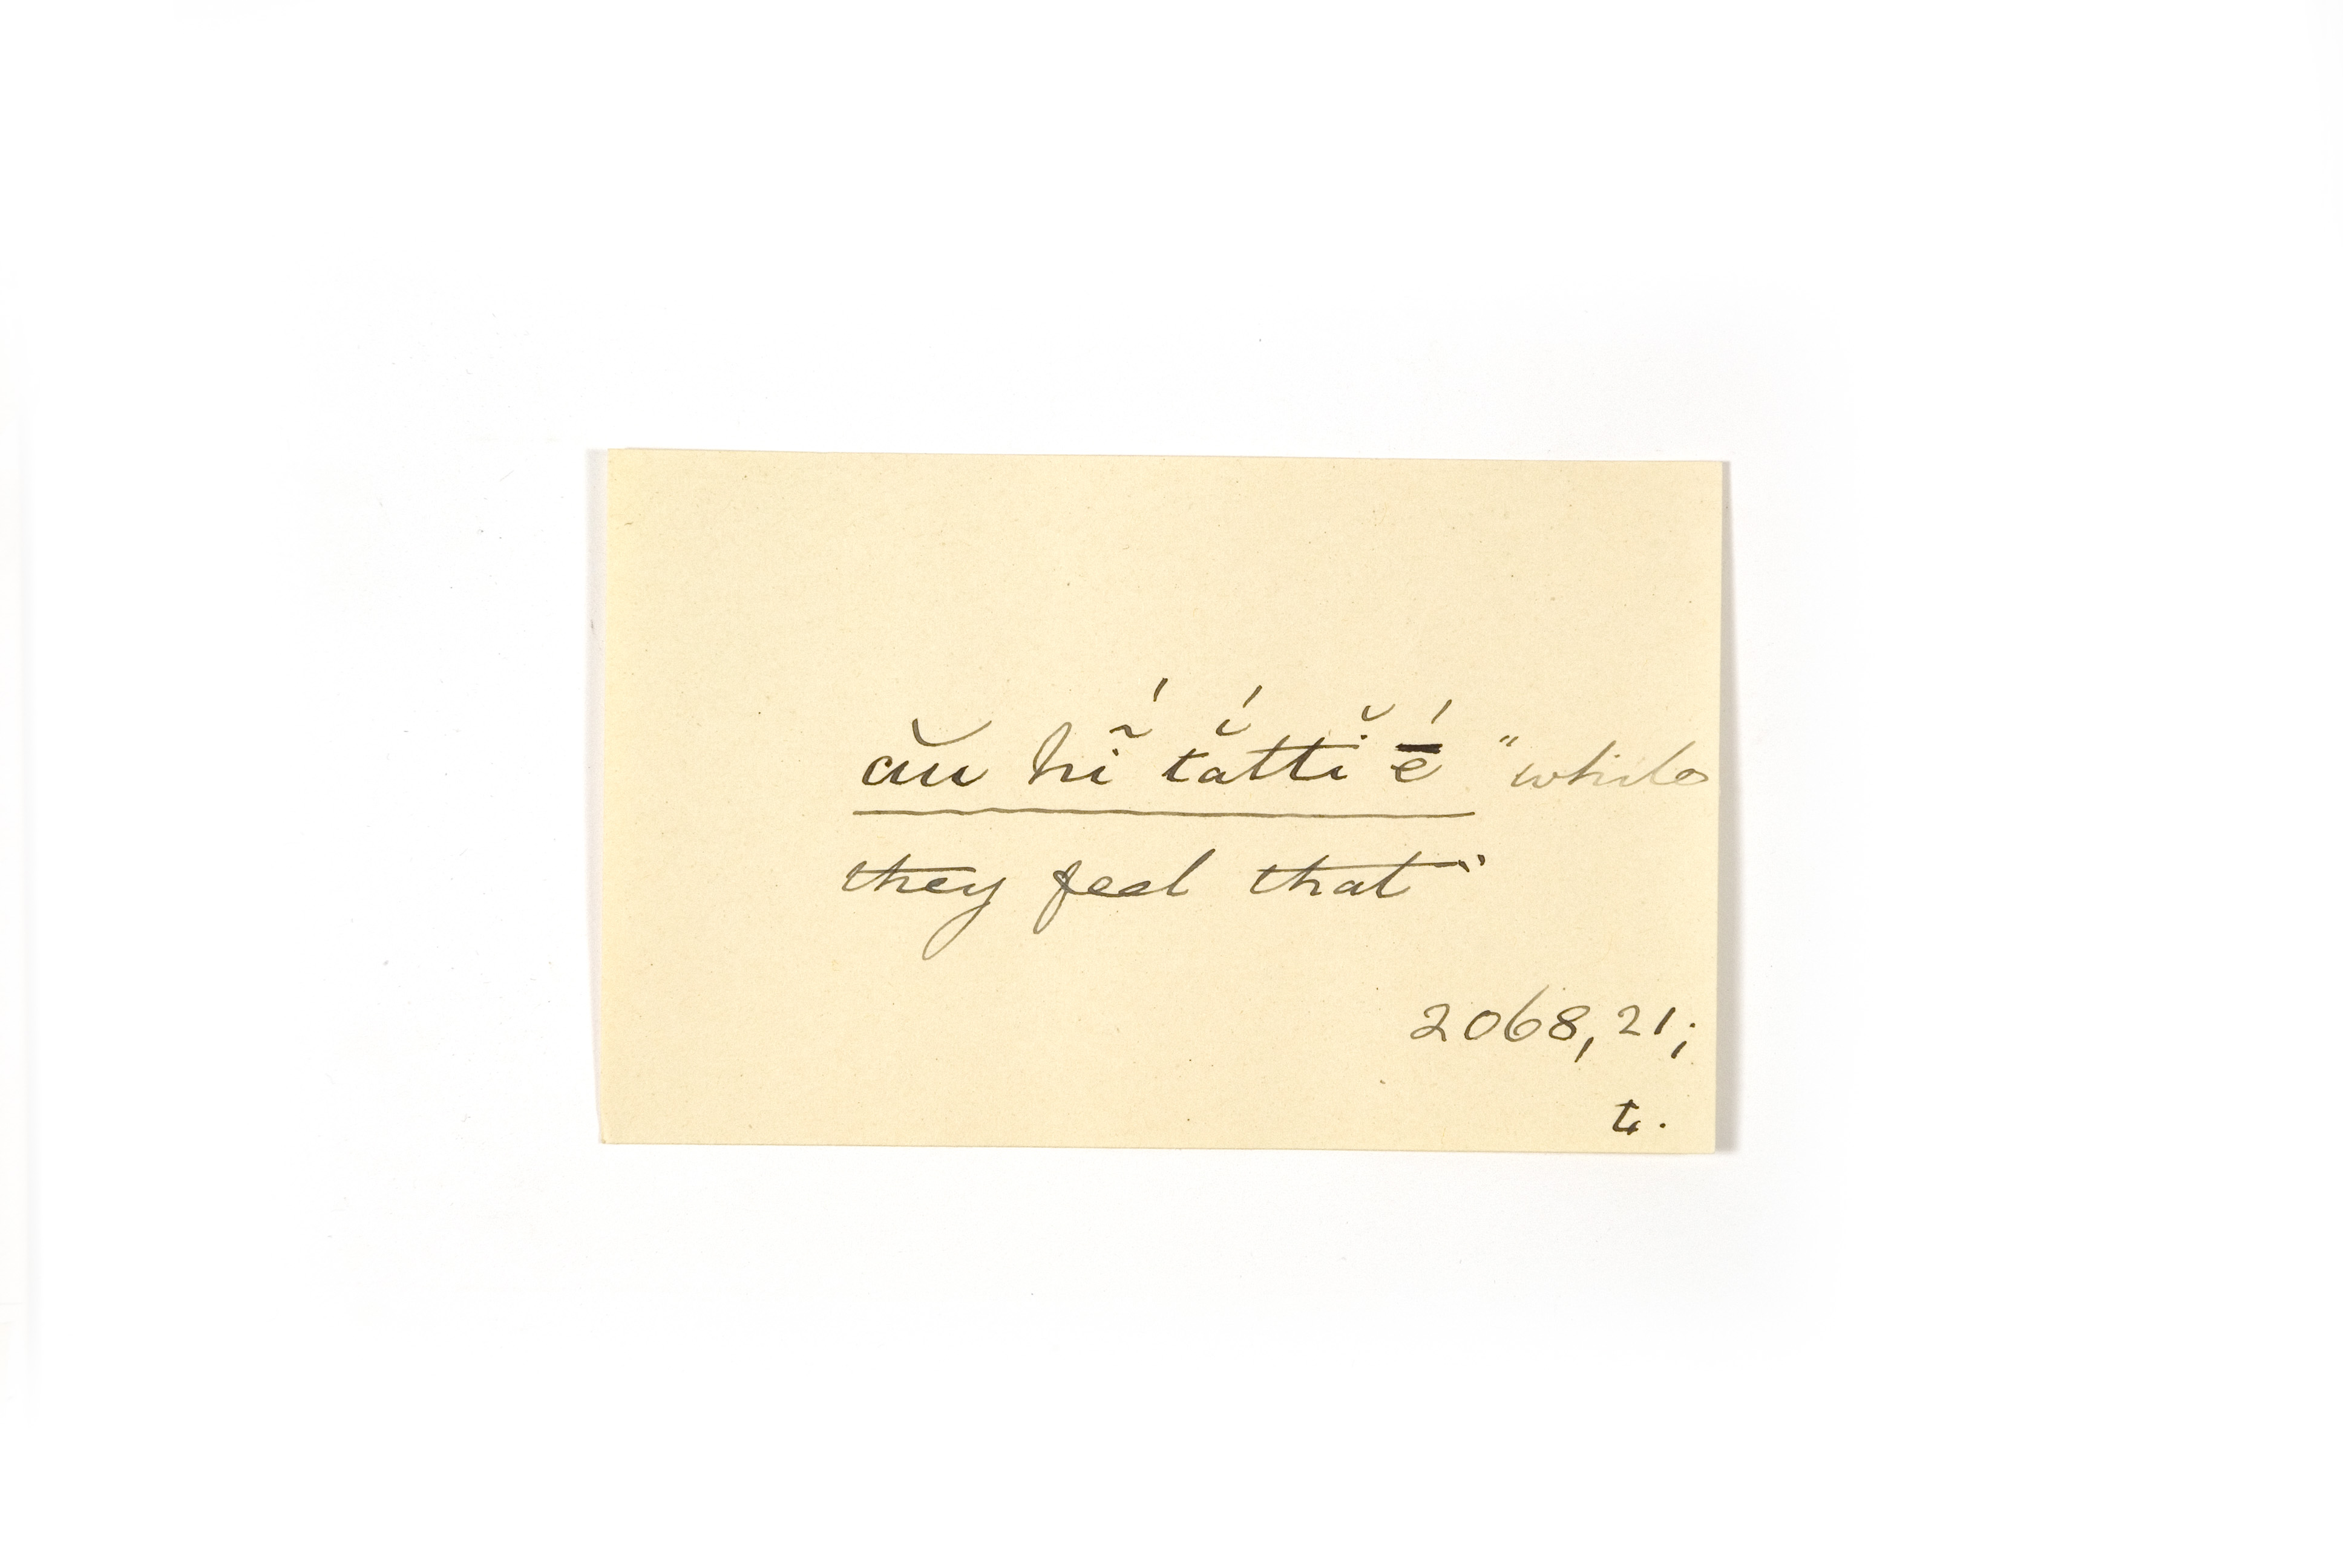 ău hĩ́ tắttĭ ḗ "while
they feel that"
2068, 21;
t.